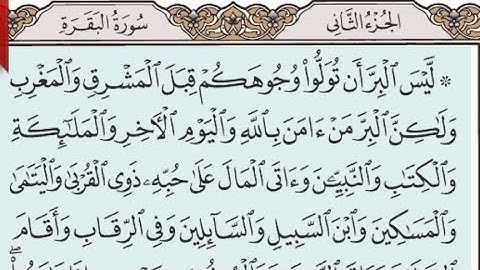 الجُزْءُ الثَّانِي
سُورَةُ البَقَرَةِ
۞ لَّيْسَ ٱلْبِرَّ أَن تُوَلُّوا۟ وُجُوهَكُمْ قِبَلَ ٱلْمَشْرِقِ وَٱلْمَغْرِبِ
وَلَٰكِنَّ ٱلْبِرَّ مَنْ ءَامَنَ بِٱللَّهِ وَٱلْيَوْمِ ٱلْأَخِرِ وَٱلْمَلَٰٓئِكَةِ
وَٱلْكِتَٰبِ وَٱلنَّبِيِّـۧنَ وَءَاتَى ٱلْمَالَ عَلَىٰ حُبِّهِۦ ذَوِى ٱلْقُرْبَىٰ وَٱلْيَتَٰمَىٰ
وَٱلْمَسَٰكِينَ وَٱبْنَ ٱلسَّبِيلِ وَٱلسَّآئِلِينَ وَفِى ٱلرِّقَابِ وَأَقَامَ